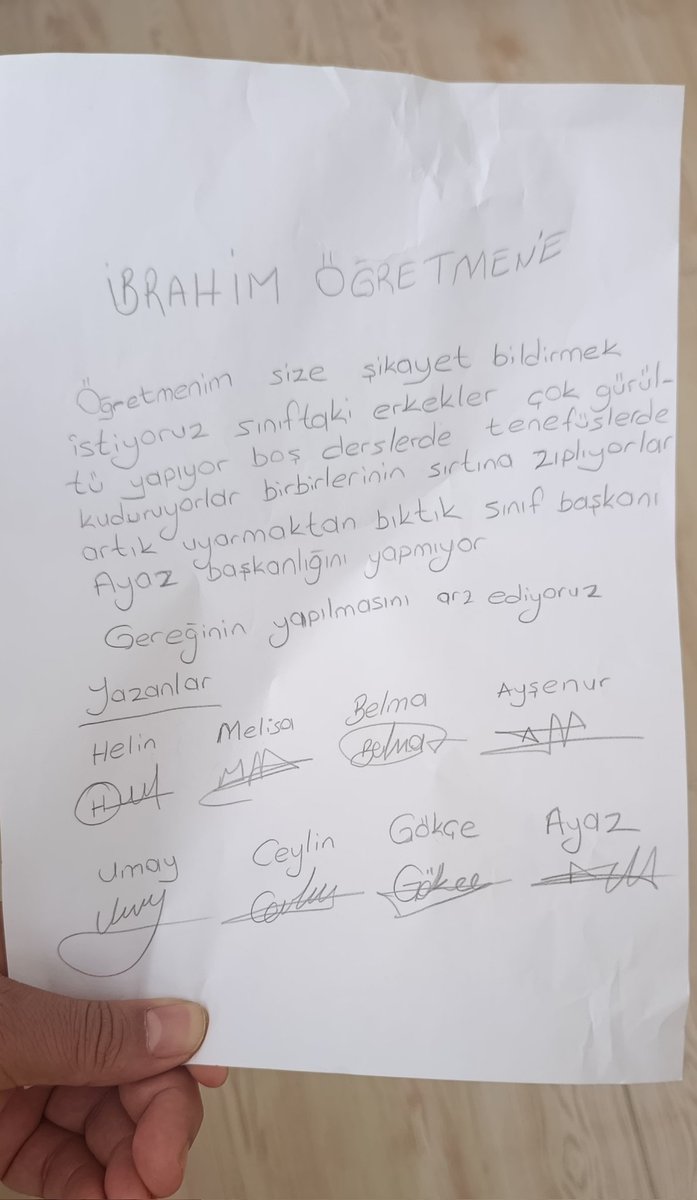 İBRAHİM ÖĞRETMEN'E
Öğretmenim size şikayet bildirmek
istiyoruz sınıftaki erkekler çok gürül-
tü yapıyor boş derslerde tenefüslerde
kuduruyorlar birbirlerinin sırtına zıplıyorlar
artık uyarmaktan bıktık sınıf başkanı
Ayaz başkanlığını yapmıyor
Gereğinin yapılmasını arz ediyoruz
Yazanlar
Helin Melisa Belma Ayşenur
Belma
Umay Ceylin Gökçe Ayaz
Gökçe